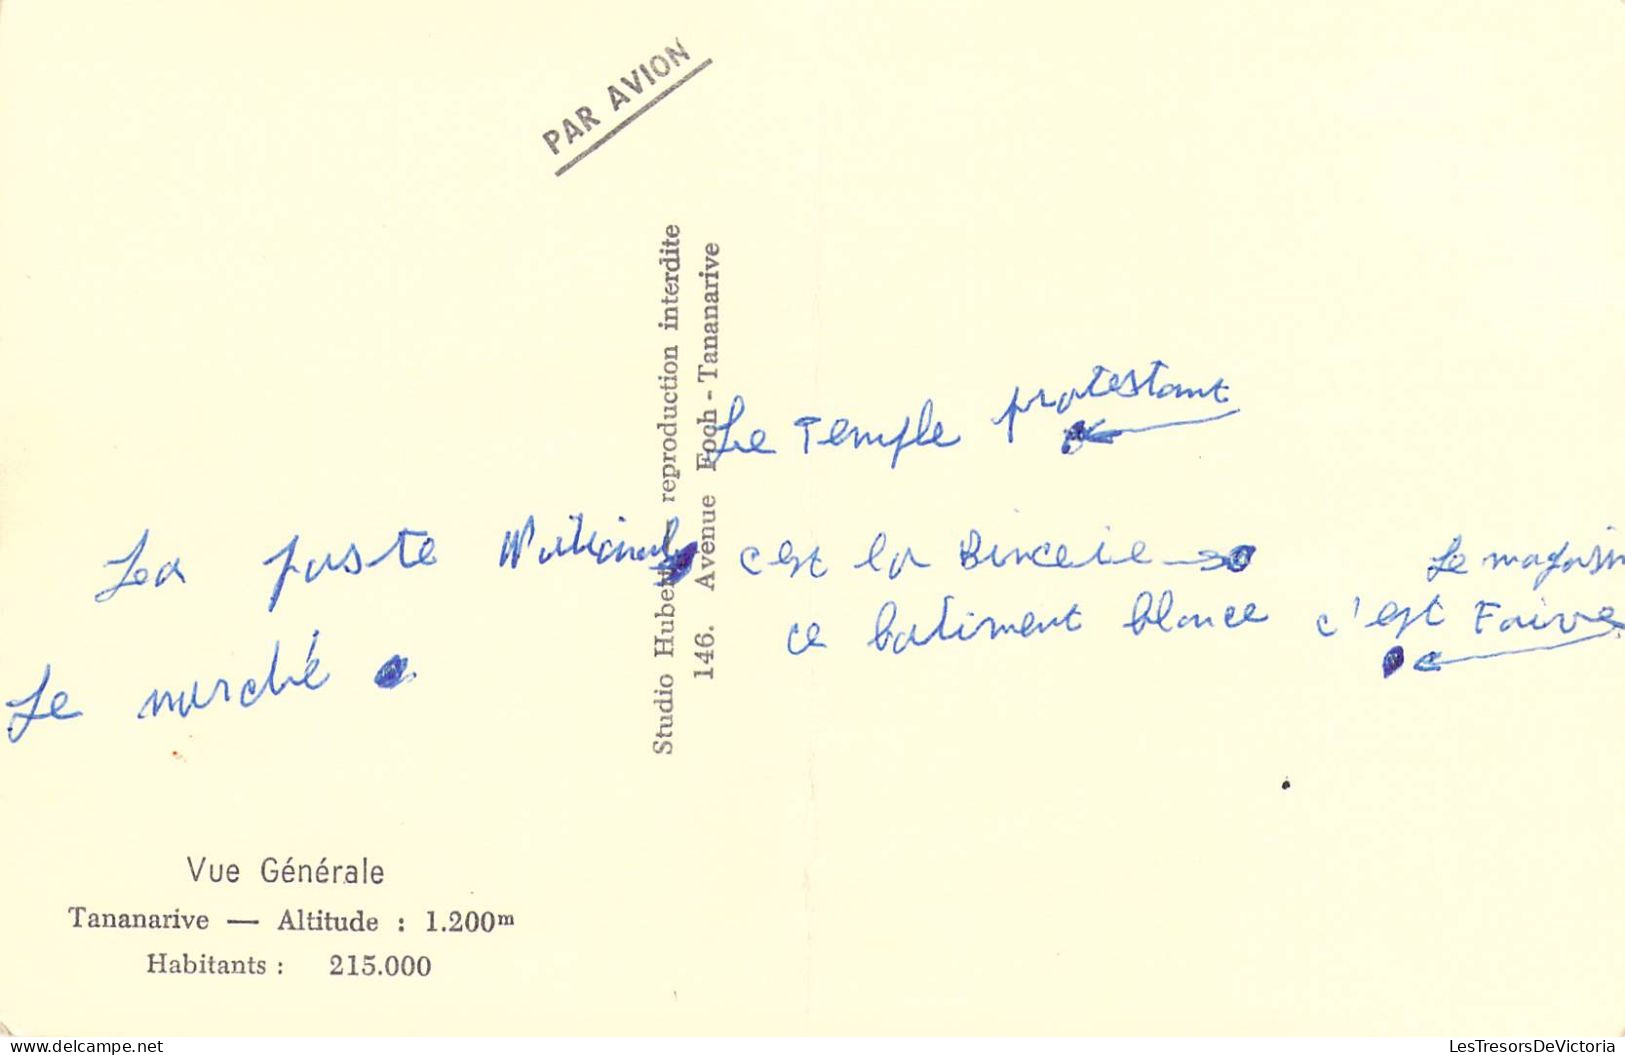 PAR AVION
Studio Hubert reproduction interdite
146. Avenue Foch - Tananarive
Le Temple protestant
La poste National
c'est la
Le magasin
ce batiment blance c'est Faivre
Le marché
Vue Générale
Tananarive — Altitude : 1.200m
Habitants : 215.000
LesTresorsDeVictoria.com
LesTresorsDeVictoria